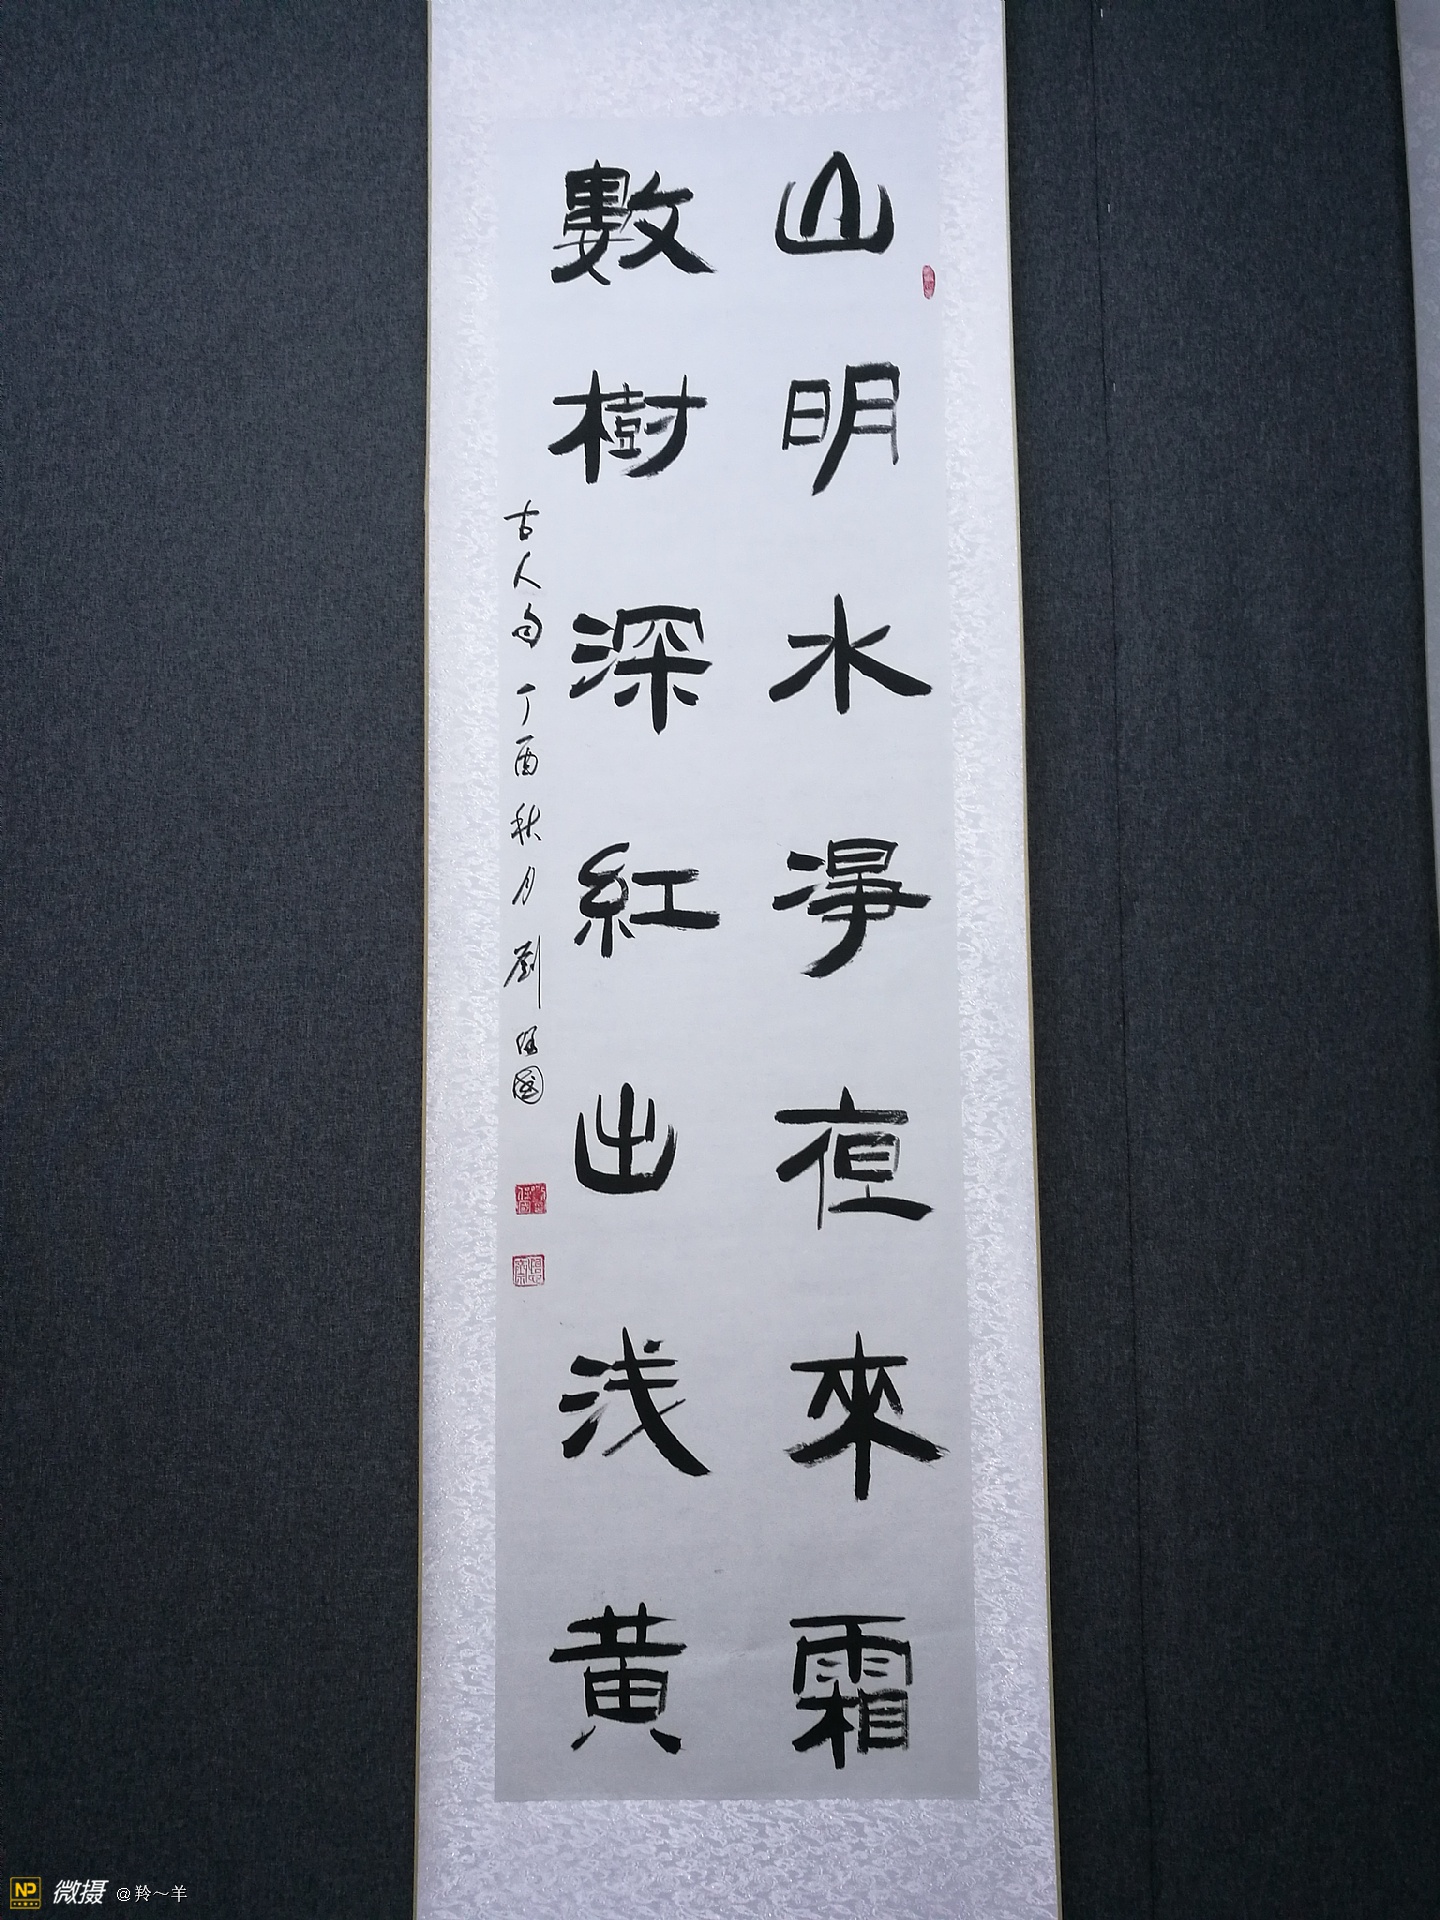 山明水淨亱來霜
數樹深紅出浅黄
古人句 丁酉秋月 劉
NP 微摄 @羚～羊